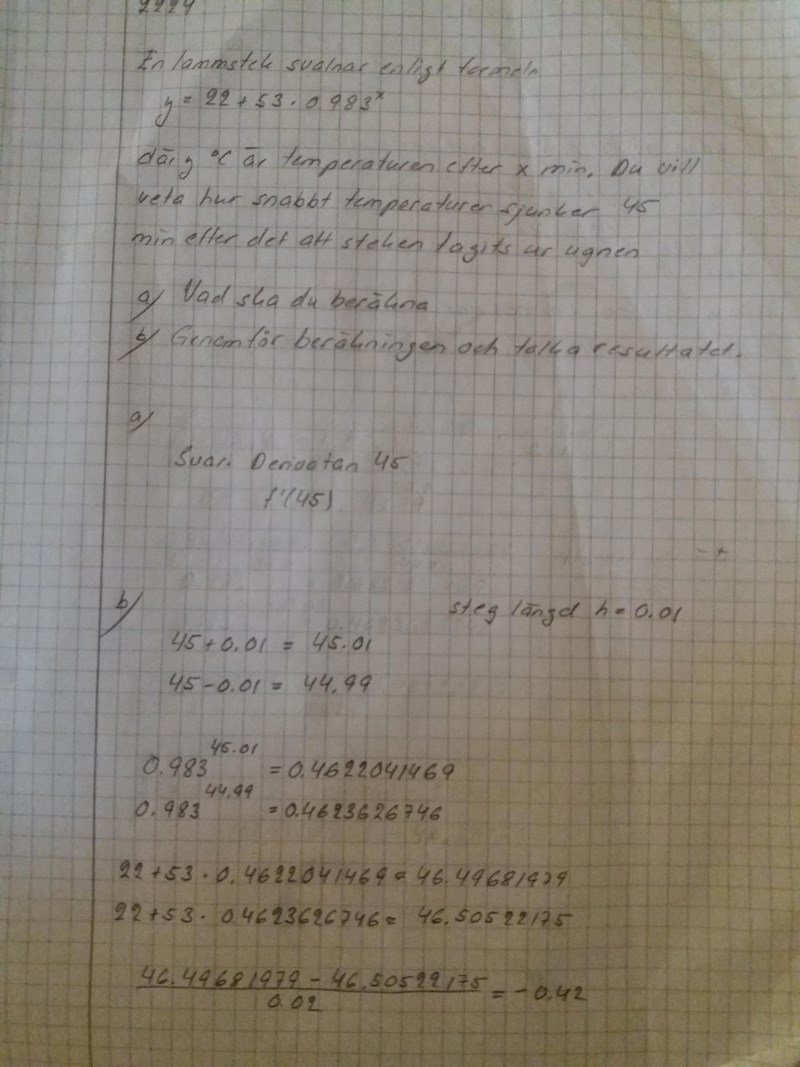 2224
En lammstek svalnar enligt formeln
y = 22 + 53 · 0.983^x
där y °C är temperaturen efter x min. Du vill
veta hur snabbt temperaturer sjunker 45
min efter det att steken tagits ur ugnen
a) Vad ska du beräkna
b) Genomför beräkningen och tolka resultatet.
a)
Svar. Derivatan 45
f'(45)
b) steg längd h = 0.01
45 + 0.01 = 45.01
45 - 0.01 = 44.99
0.983^45.01 = 0.4622041469
0.983^44.99 = 0.4623626746
22 + 53 · 0.4622041469 = 46.49681979
22 + 53 · 0.4623626746 = 46.50522175
46.49681979 - 46.50522175 / 0.02 = -0.42